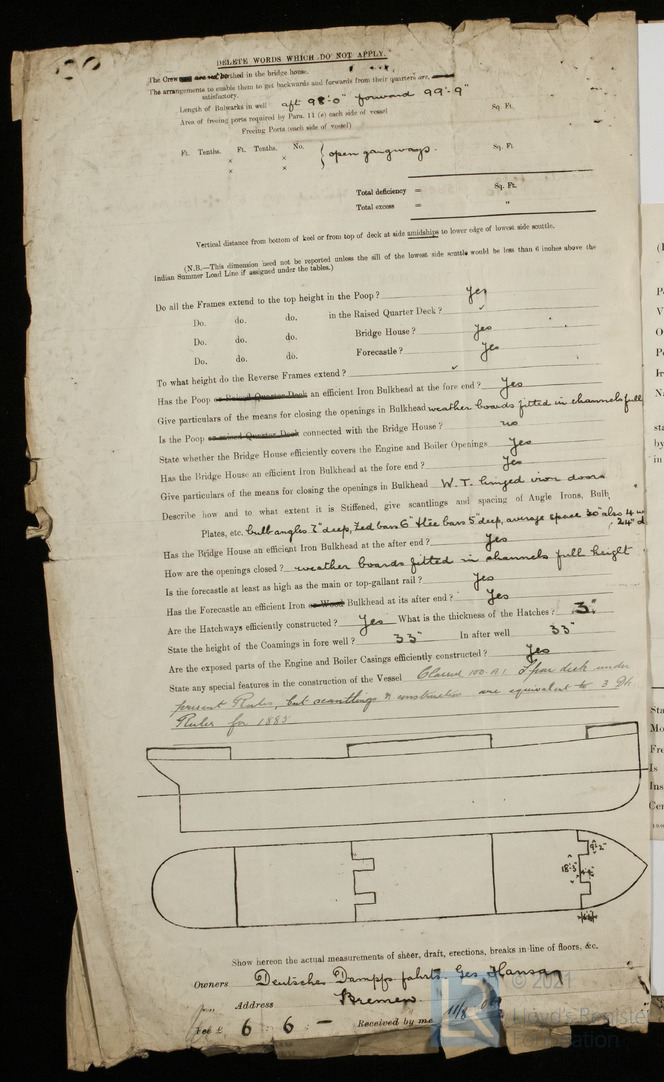 DELETE WORDS WHICH DO NOT APPLY.
The Crew are berthed in the bridge house.
The arrangements to enable them to get backwards and forwards from their quarters are
satisfactory.
Length of Bulwarks in well aft 98'-0" forward 99'-9"
Area of freeing ports required by Para. 11 (e) each side of vessel Sq. Ft.
Freeing Ports (each side of vessel)
Ft. Tenths. Ft. Tenths. No. { open gangways. Sq. Ft.
× ×
× ×
Total deficiency = Sq. Ft.
Total excess = "
Vertical distance from bottom of keel or from top of deck at side amidships to lower edge of lowest side scuttle.
(N.B.—This dimension need not be reported unless the sill of the lowest side scuttle would be less than 6 inches above the
Indian Summer Load Line if assigned under the tables.)
Do all the Frames extend to the top height in the Poop? Yes
Do. do. do. in the Raised Quarter Deck?
Do. do. do. Bridge House? Yes
Do. do. do. Forecastle? Yes
To what height do the Reverse Frames extend?
Has the Poop or Raised Quarter Deck an efficient Iron Bulkhead at the fore end? Yes
Give particulars of the means for closing the openings in Bulkhead weather boards fitted in channels full
Is the Poop or raised Quarter Deck connected with the Bridge House? no
State whether the Bridge House efficiently covers the Engine and Boiler Openings Yes
Has the Bridge House an efficient Iron Bulkhead at the fore end? Yes
Give particulars of the means for closing the openings in Bulkhead W.T. hinged iron doors
Describe how and to what extent it is Stiffened, give scantlings and spacing of Angle Irons, Bulb
Plates, etc. bulb angles 7" deep, Zed bars 6" & tee bars 5" deep, average space 30" also 4 w
24" d
Has the Bridge House an efficient Iron Bulkhead at the after end? Yes
How are the openings closed? weather boards fitted in channels full height
Is the forecastle at least as high as the main or top-gallant rail? Yes
Has the Forecastle an efficient Iron or Wood Bulkhead at its after end? Yes
Are the Hatchways efficiently constructed? Yes What is the thickness of the Hatches? 3"
State the height of the Coamings in fore well? 33" In after well 33"
Are the exposed parts of the Engine and Boiler Casings efficiently constructed? Yes
State any special features in the construction of the Vessel Classed 100.A1. Spar deck under
present Rules, but scantlings & construction are equivalent to 3 Dk.
Rules for 1885
9'-2"
18'-3"
Show hereon the actual measurements of sheer, draft, erections, breaks in line of floors, &c.
Owners Deutsche Dampfs. fahrts. Ges Hansa
Address Bremen
Fee £ 6 : 6 : — Received by me
© 2021
Lloyd's Register
Foundation